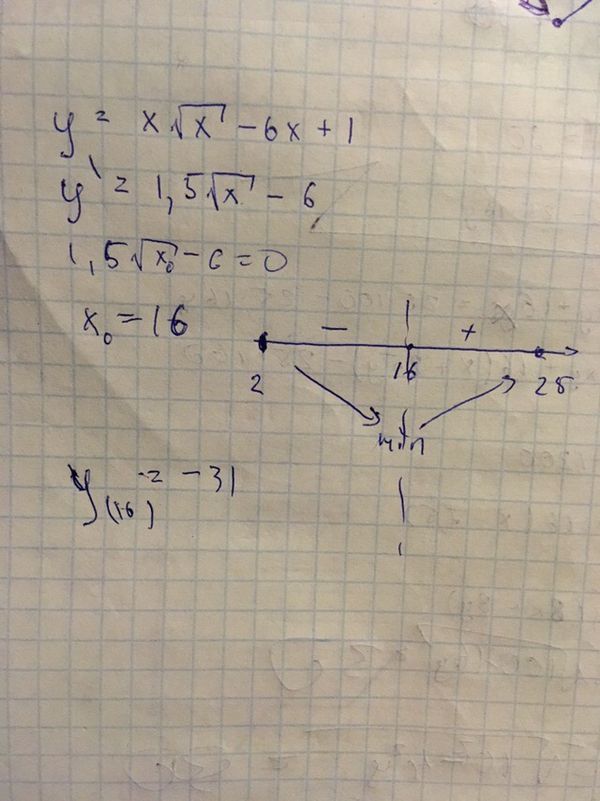 y = x√x - 6x + 1
y' = 1,5√x - 6
1,5√x₀ - 6 = 0
x₀ = 16
- +
2 16 25
min
y(16) = -31